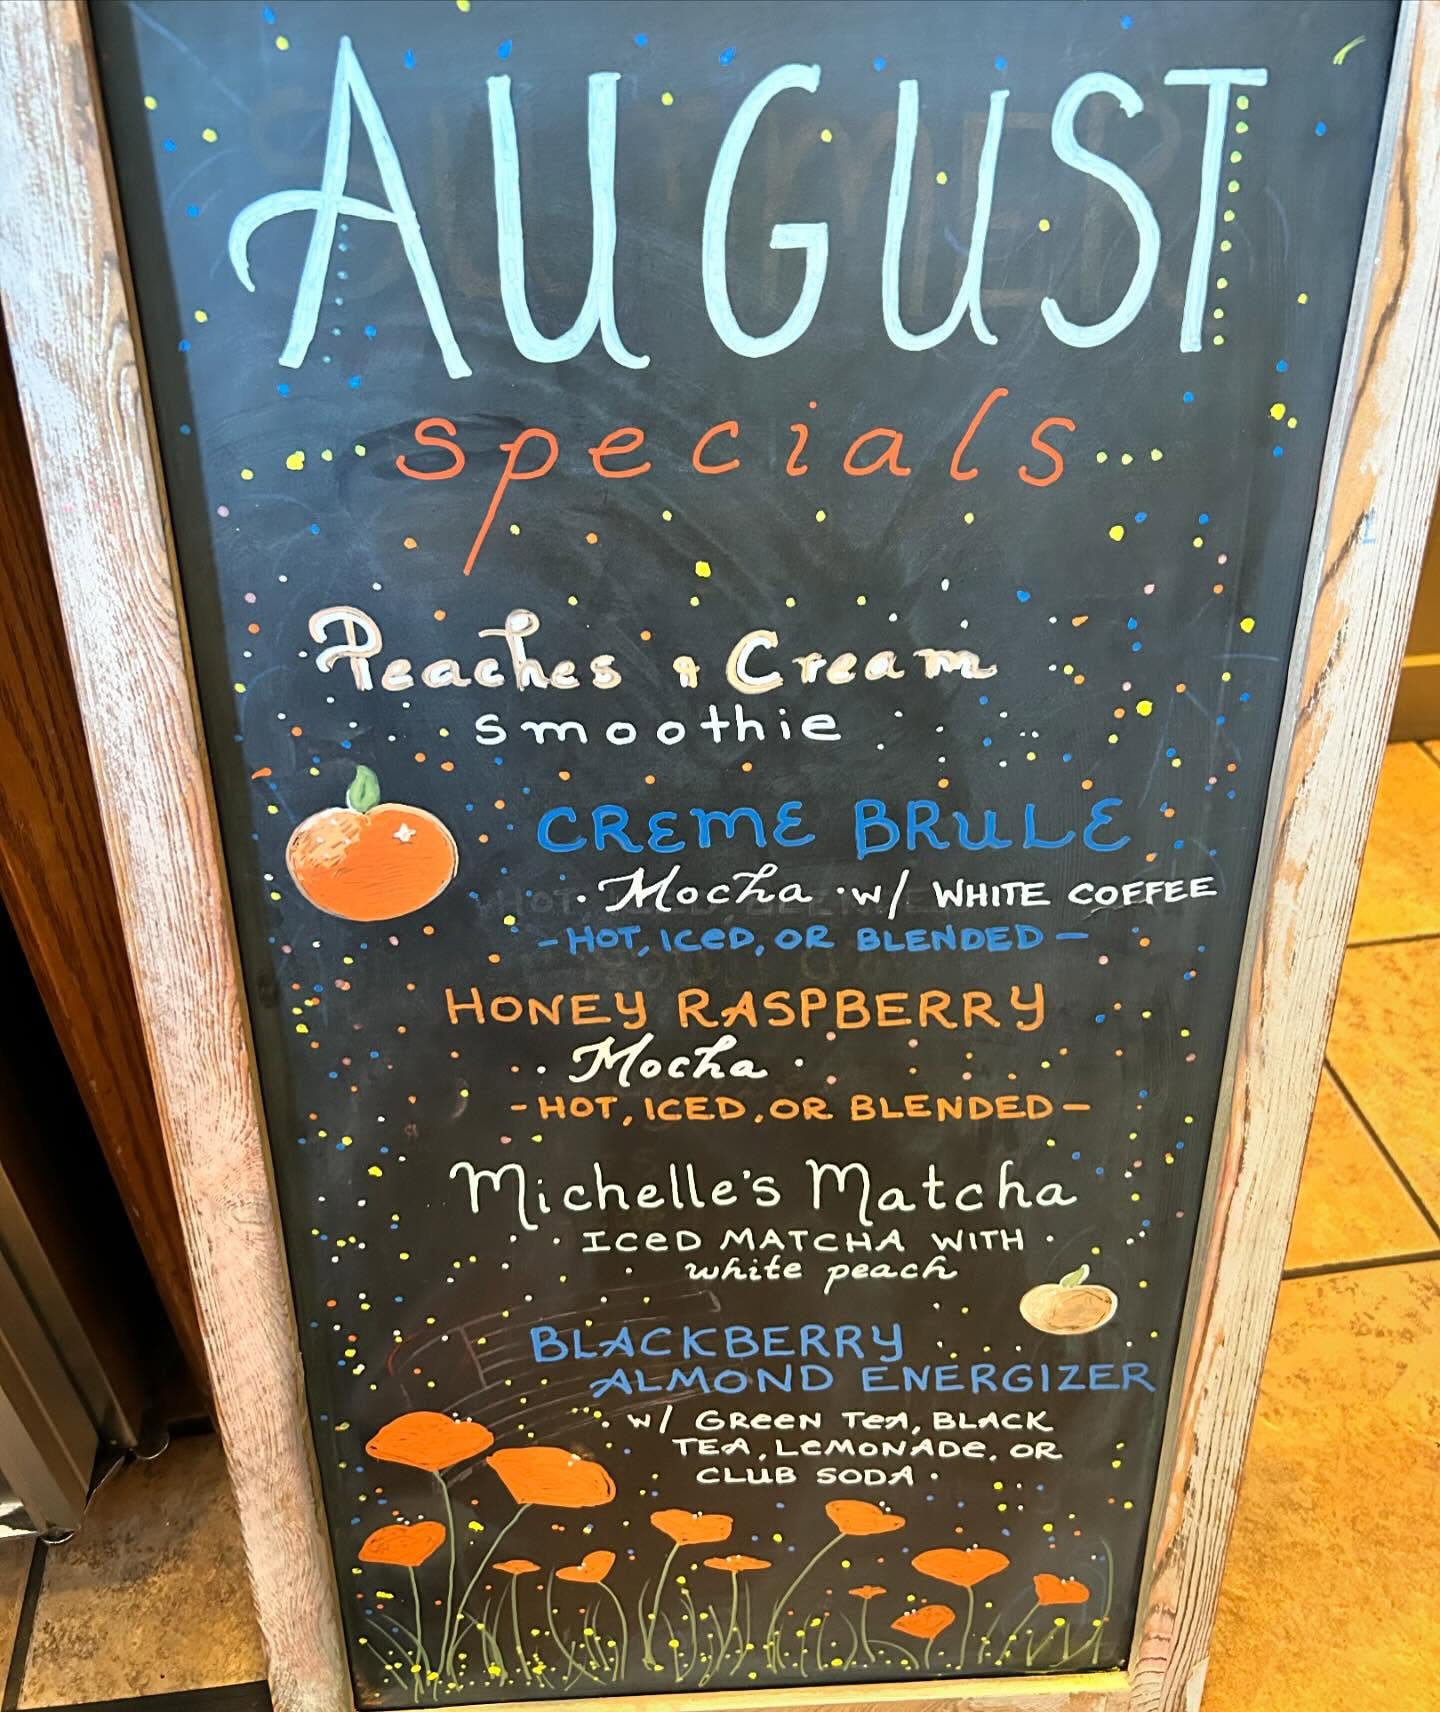 AUGUST
specials
Peaches & Cream
smoothie
CREME BRULE
Mocha w/ WHITE COFFEE
- HOT, ICED, OR BLENDED -
HONEY RASPBERRY
Mocha
- HOT, ICED, OR BLENDED -
Michelle's Matcha
ICED MATCHA WITH
white peach
BLACKBERRY
ALMOND ENERGIZER
w/ GREEN TEA, BLACK
TEA, LEMONADE, OR
CLUB SODA